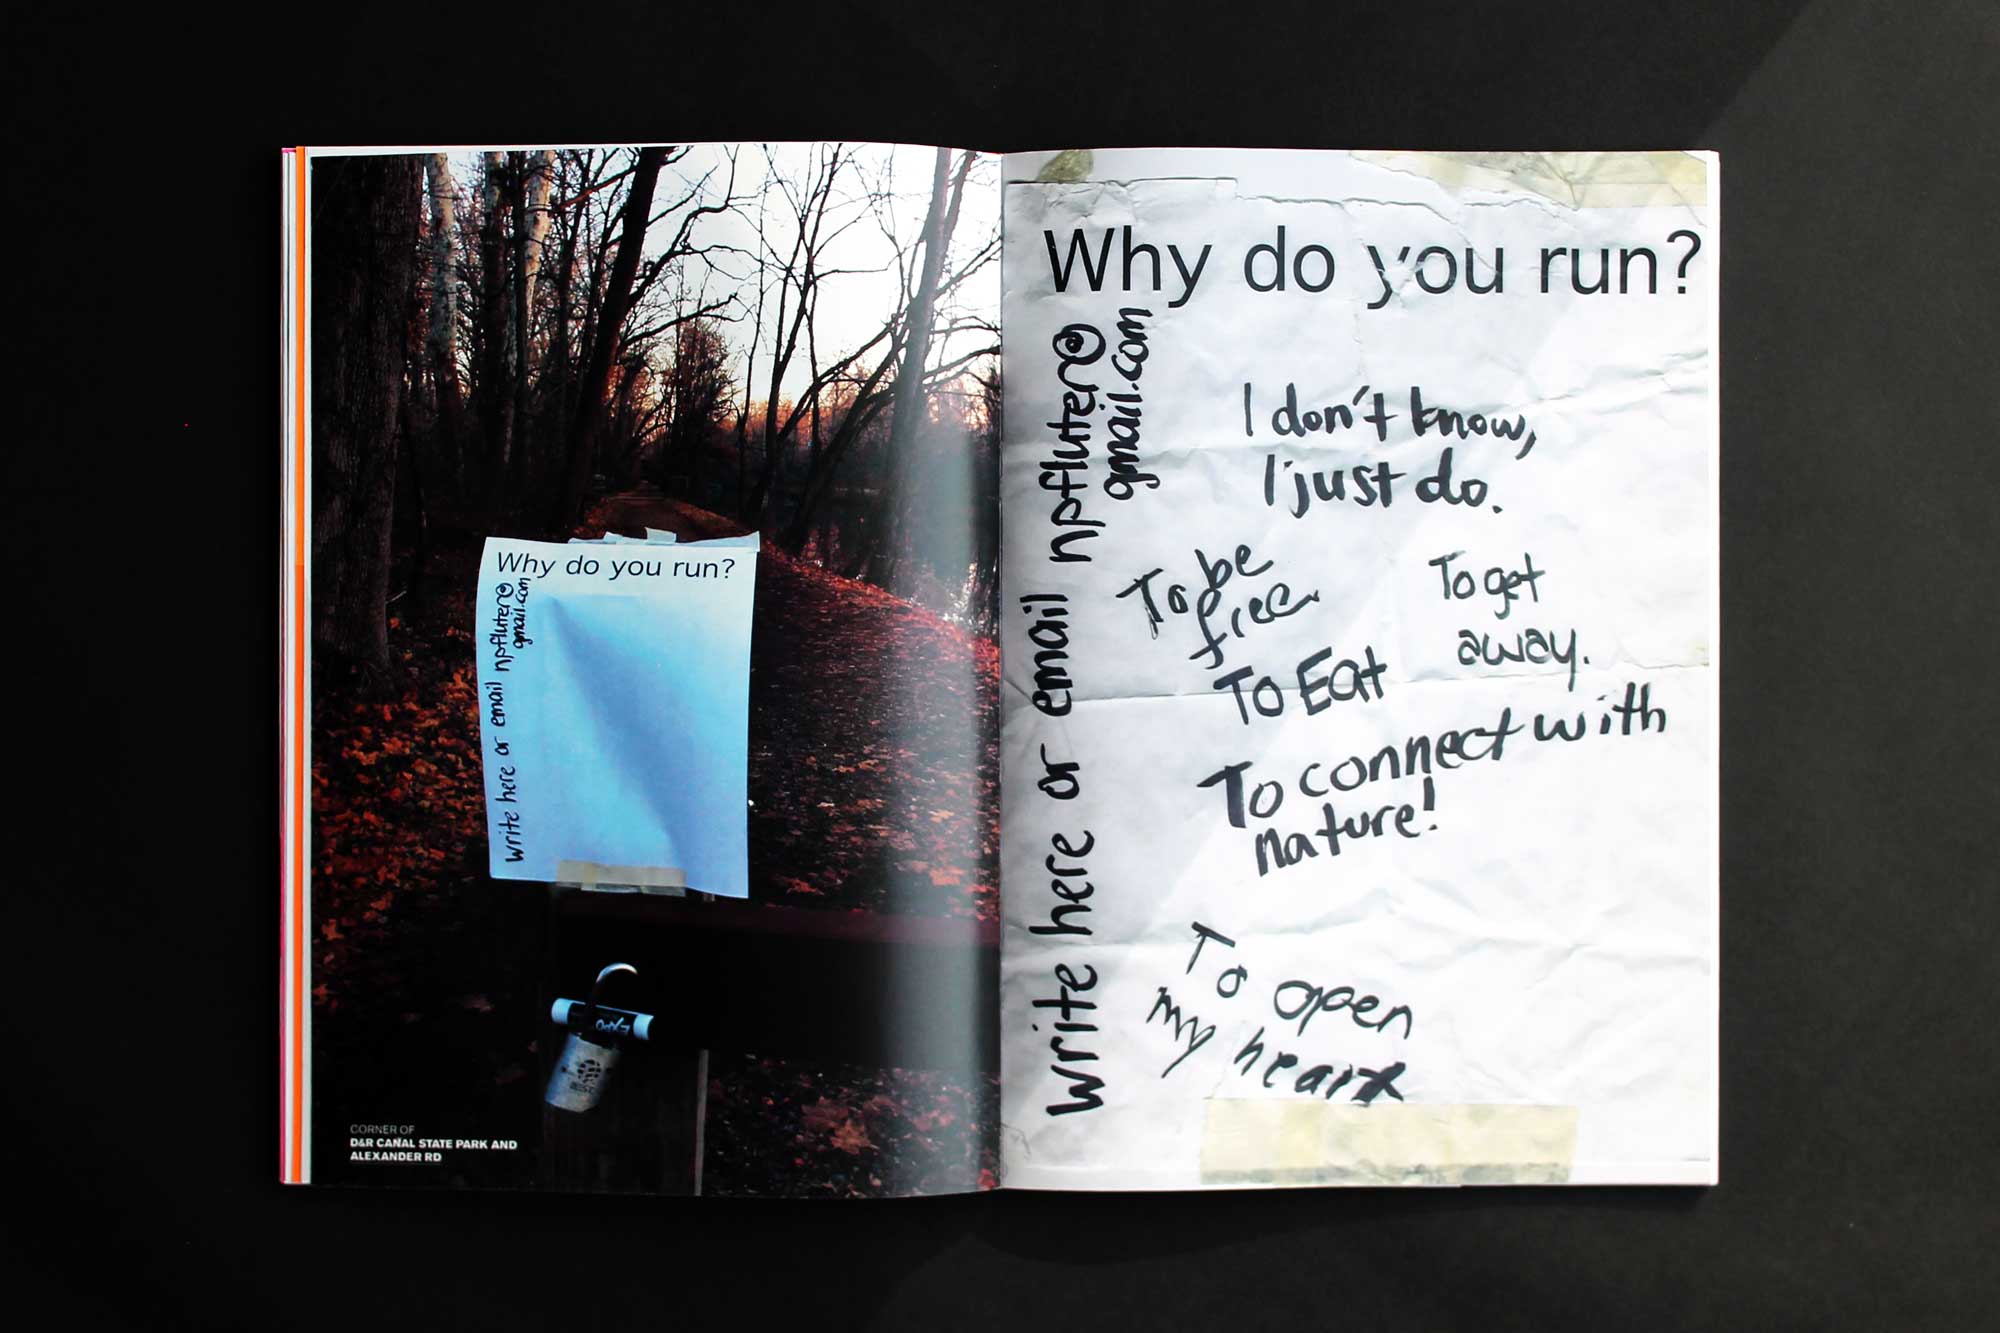 Why do you run?
write here or email npfluter@
gmail.com
EXPO
BEST
CORNER OF
D&R CANAL STATE PARK AND
ALEXANDER RD
Why do you run?
write here or email npfluter@
gmail.com
I don't know,
I just do.
To be
free
To get
away.
To Eat
To connect with
nature!
To open
my heart